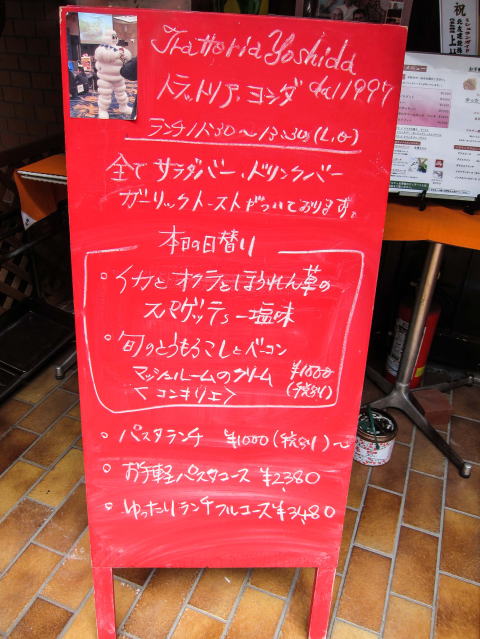 Trattoria Yoshida
トラットリア・ヨシダ da 1997
ランチ11:30〜13:30(L.O)
全て サラダバー、ドリンクバー
ガーリックトーストがついております。
本日の日替り
○ イカとオクラとほうれん草の
スパゲッティー塩味
○ 旬のとうもろこしとベーコン
マッシュルームのクリーム ¥1000
<コンキリエ> (税別)
○ パスタランチ ¥1000(税別)〜
○ お手軽パスタコース ¥2,380
○ ゆったりランチフルコース ¥3,480
祝